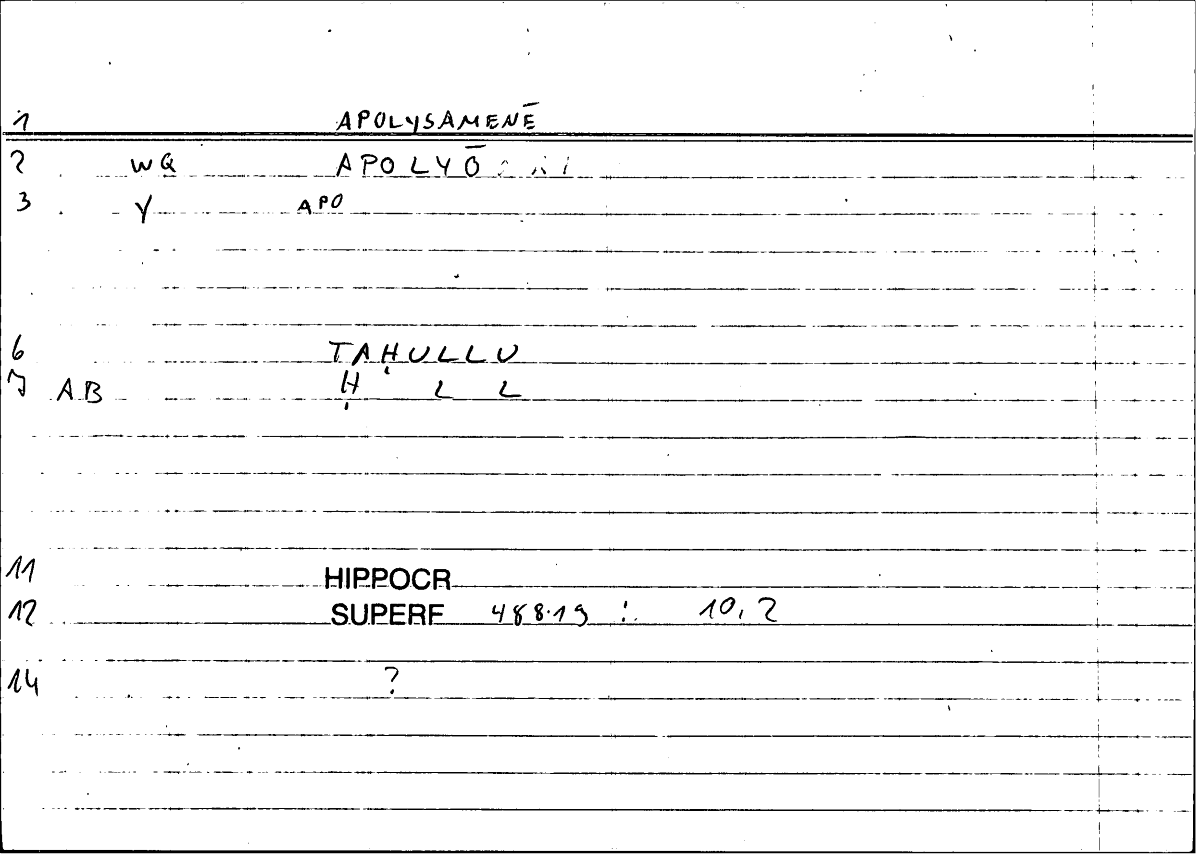 1 APOLYSAMENĒ
2 WQ APOLYŌ
3 Y APO
6 TAḤULLU
7 AB Ḥ L L
11 HIPPOCR
12 SUPERF 488.19 : 10,2
14 ?